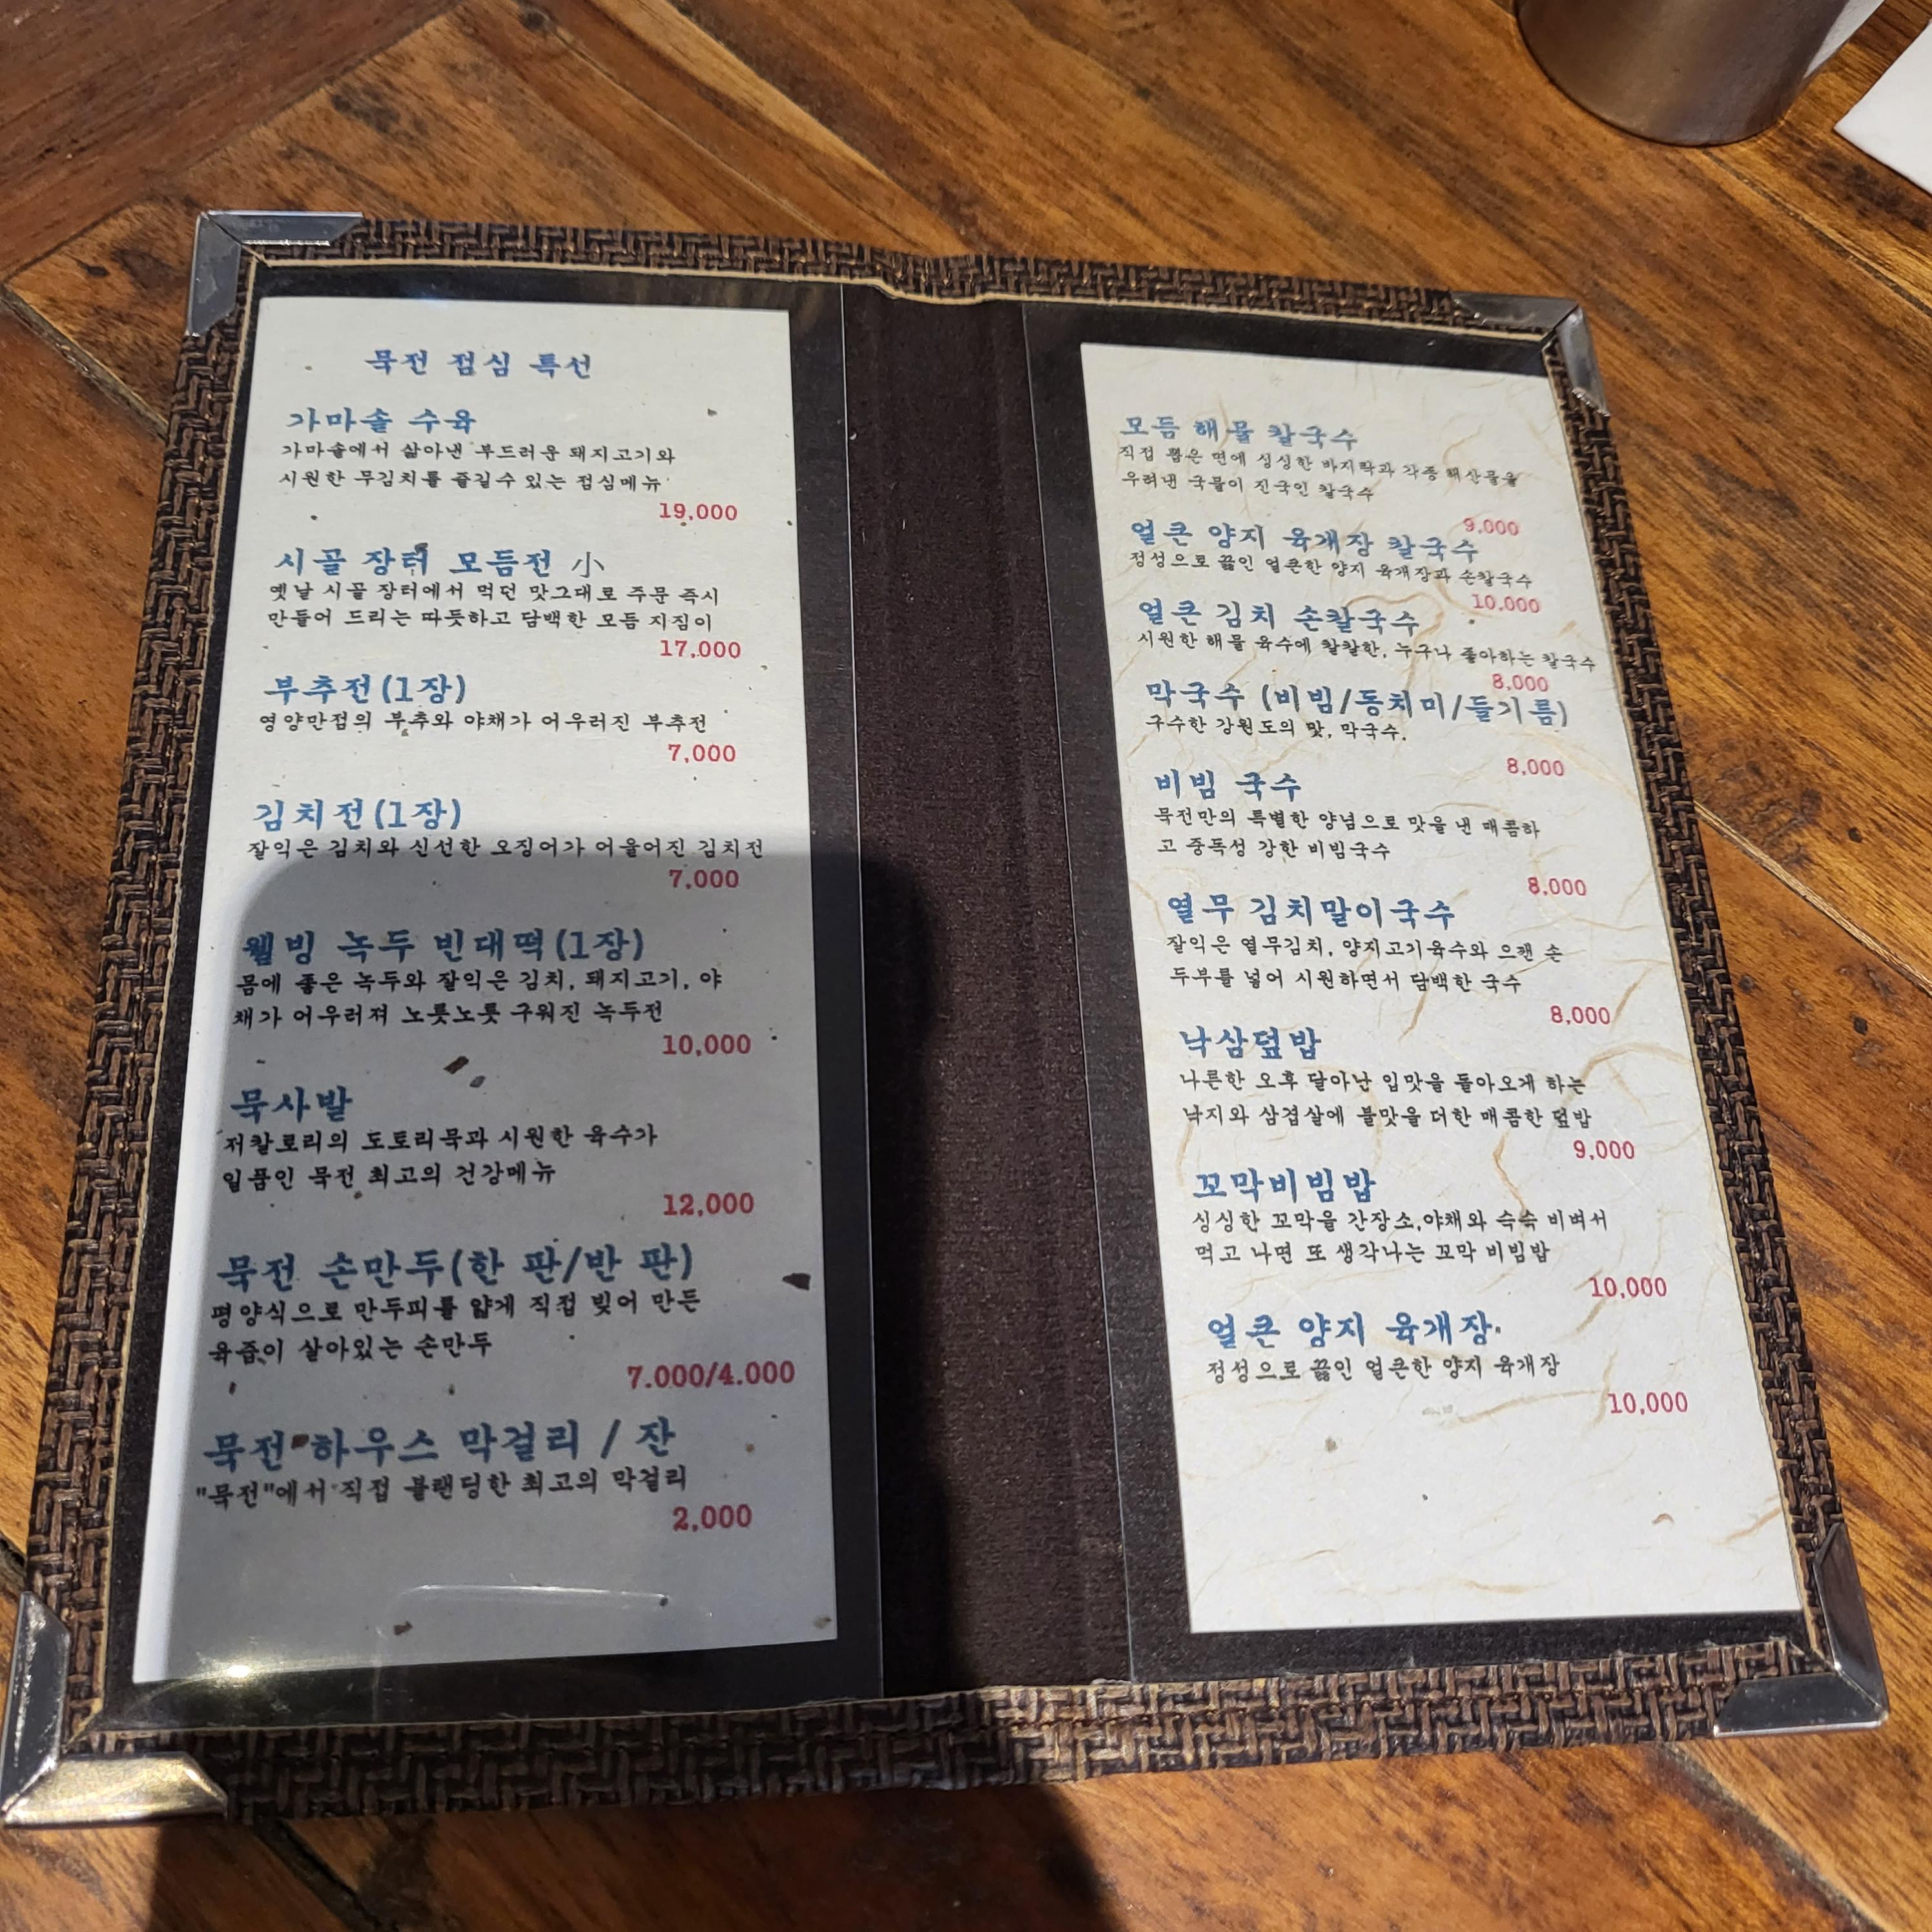 묵전 점심 특선
가마솥 수육
가마솥에서 삶아낸 부드러운 돼지고기와
시원한 무김치를 즐길수 있는 점심메뉴
19,000
시골 장터 모듬전 小
옛날 시골 장터에서 먹던 맛그대로 주문 즉시
만들어 드리는 따뜻하고 담백한 모듬 지짐이
17,000
부추전(1장)
영양만점의 부추와 야채가 어우러진 부추전
7,000
김치전(1장)
잘익은 김치와 신선한 오징어가 어울어진 김치전
7,000
웰빙 녹두 빈대떡(1장)
몸에 좋은 녹두와 잘익은 김치, 돼지고기, 야
채가 어우러져 노릇노릇 구워진 녹두전
10,000
묵사발
저칼로리의 도토리묵과 시원한 육수가
일품인 묵전 최고의 건강메뉴
12,000
묵전 손만두(한 판/반 판)
평양식으로 만두피를 얇게 직접 빚어 만든
육즙이 살아있는 손만두
7.000/4.000
묵전 하우스 막걸리 / 잔
"묵전"에서 직접 블랜딩한 최고의 막걸리
2,000
모듬 해물 칼국수
직접 뽑은 면에 싱싱한 바지락과 각종 해산물을
우려낸 국물이 진국인 칼국수
9,000
얼큰 양지 육개장 칼국수
정성으로 끓인 얼큰한 양지 육개장과 손칼국수
10,000
얼큰 김치 손칼국수
시원한 해물 육수에 칼칼한, 누구나 좋아하는 칼국수
8,000
막국수 (비빔/동치미/들기름)
구수한 강원도의 맛, 막국수.
8,000
비빔 국수
묵전만의 특별한 양념으로 맛을 낸 매콤하
고 중독성 강한 비빔국수
8,000
열무 김치말이국수
잘익은 열무김치, 양지고기육수와 으깬 손
두부를 넣어 시원하면서 담백한 국수
8,000
낙삼덮밥
나른한 오후 달아난 입맛을 돌아오게 하는
낙지와 삼겹살에 불맛을 더한 매콤한 덮밥
9,000
꼬막비빔밥
싱싱한 꼬막을 간장소,야채와 슥슥 비벼서
먹고 나면 또 생각나는 꼬막 비빔밥
10,000
얼큰 양지 육개장
정성으로 끓인 얼큰한 양지 육개장
10,000